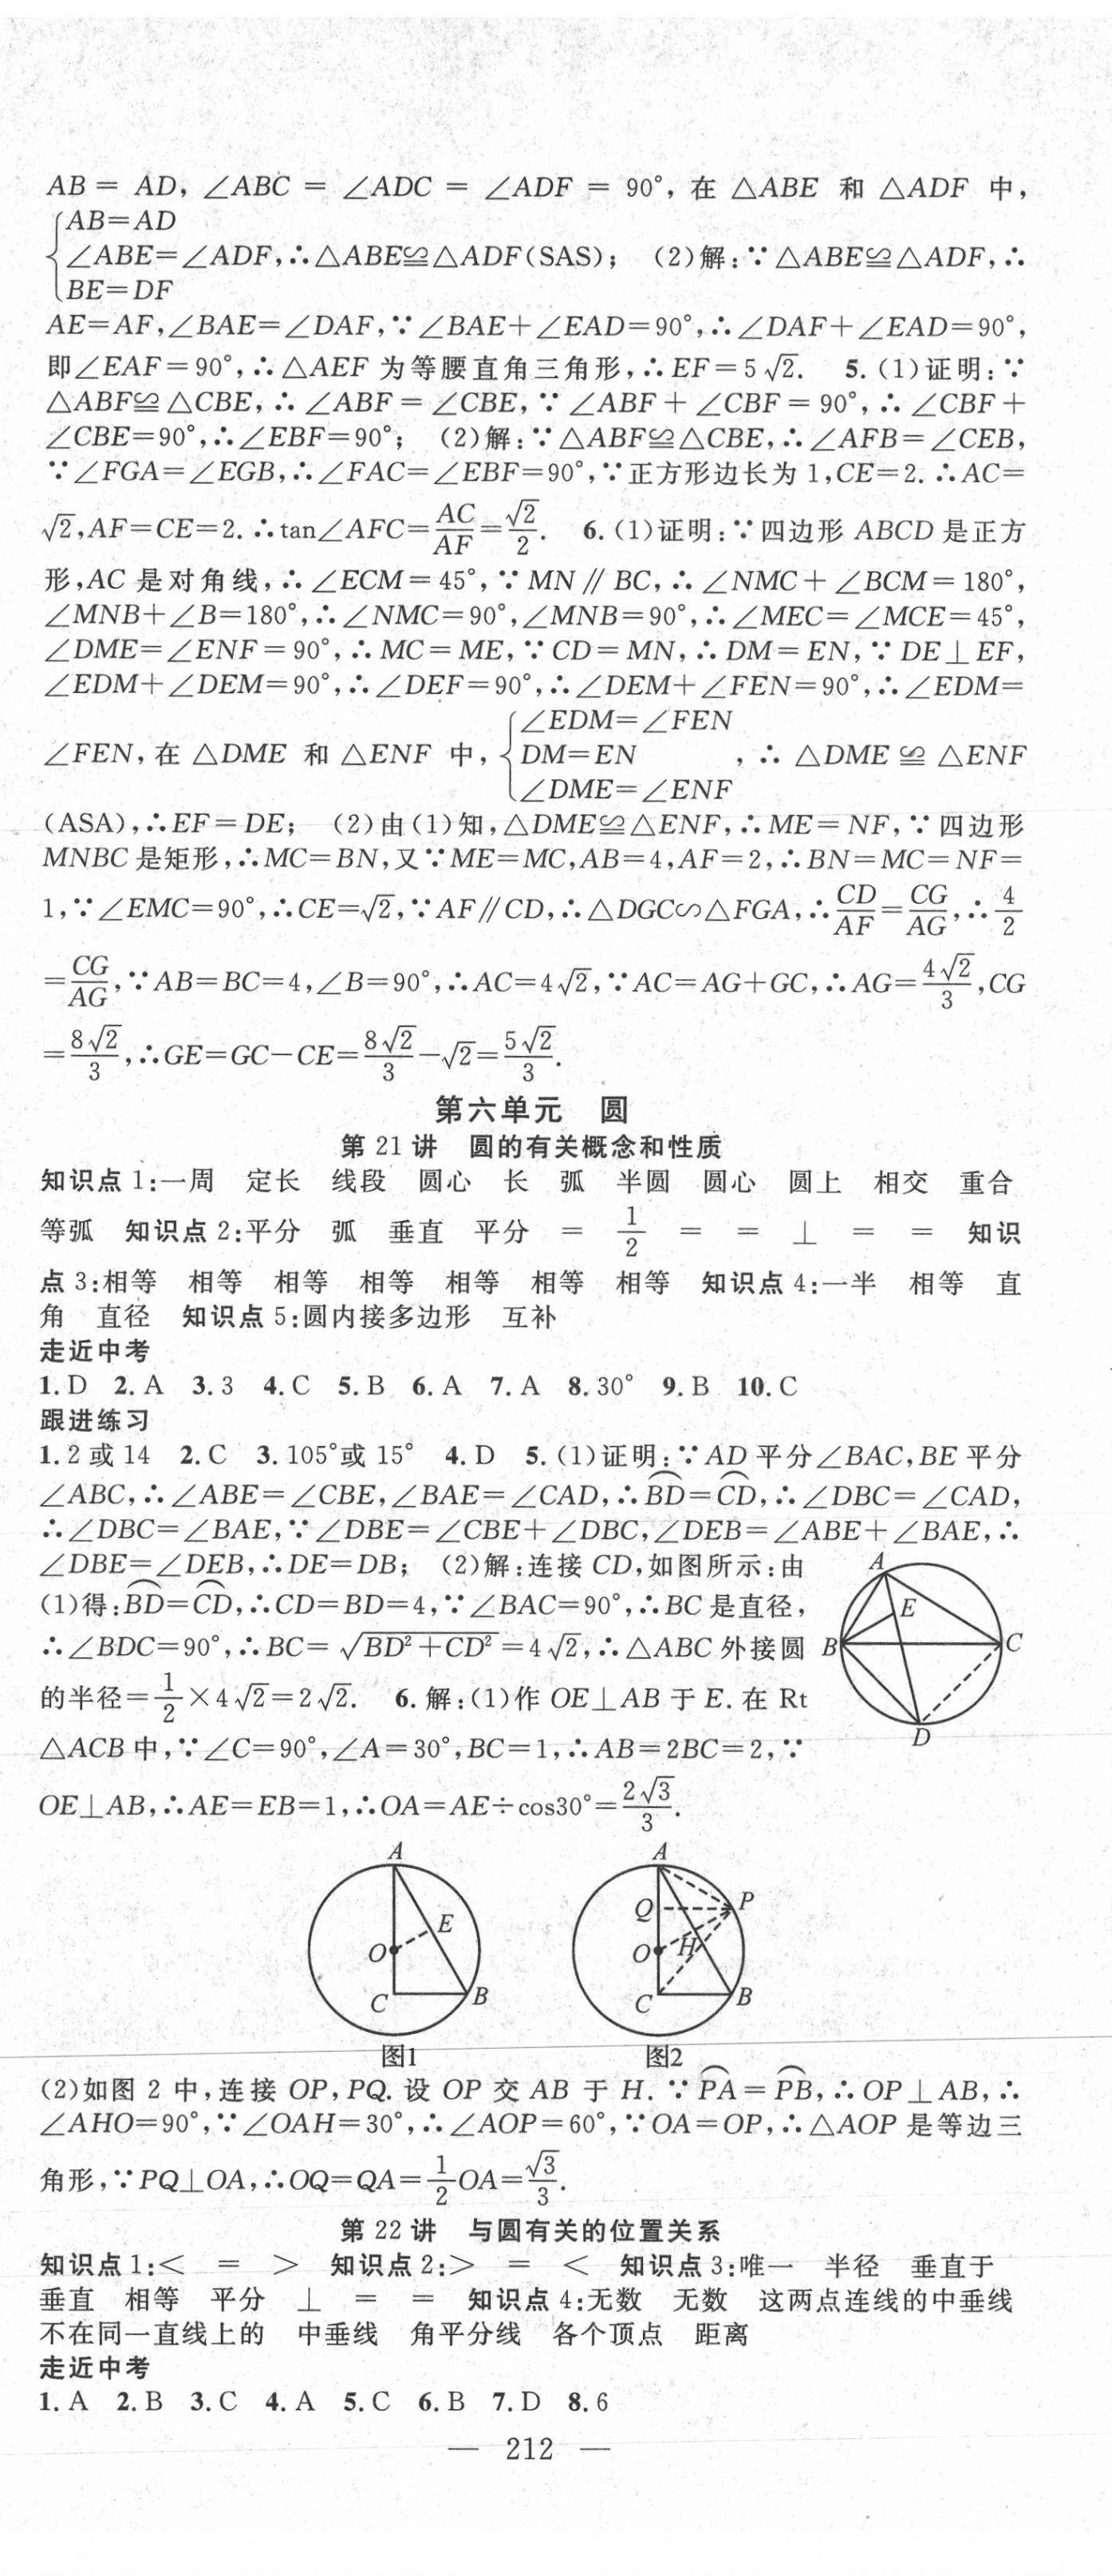 AB = AD, ∠ABC = ∠ADC = ∠ADF = 90°, 在 △ABE 和 △ADF 中,
{AB=AD
∠ABE=∠ADF,∴△ABE≌△ADF(SAS); (2)解:∵△ABE≌△ADF,∴
BE=DF
AE=AF,∠BAE=∠DAF,∵∠BAE+∠EAD=90°,∴∠DAF+∠EAD=90°,
即∠EAF=90°,∴△AEF 为等腰直角三角形,∴EF=5√2. 5.(1)证明:∵
△ABF≌△CBE,∴∠ABF=∠CBE,∵∠ABF+∠CBF=90°,∴∠CBF+
∠CBE=90°,∴∠EBF=90°; (2)解:∵△ABF≌△CBE,∴∠AFB=∠CEB,
∵∠FGA=∠EGB,∴∠FAC=∠EBF=90°,∵正方形边长为 1,CE=2.∴AC=
√2,AF=CE=2.∴tan∠AFC=AC/AF=√2/2. 6.(1)证明:∵四边形 ABCD 是正方
形,AC 是对角线,∴∠ECM=45°,∵MN∥BC,∴∠NMC+∠BCM=180°,
∠MNB+∠B=180°,∴∠NMC=90°,∠MNB=90°,∴∠MEC=∠MCE=45°,
∠DME=∠ENF=90°,∴MC=ME,∵CD=MN,∴DM=EN,∵DE⊥EF,
∠EDM+∠DEM=90°,∴∠DEF=90°,∴∠DEM+∠FEN=90°,∴∠EDM=
{∠EDM=∠FEN
∠FEN, 在 △DME 和 △ENF 中, DM=EN ,∴ △DME≌△ENF
∠DME=∠ENF
(ASA),∴EF=DE; (2)由(1)知,△DME≌△ENF,∴ME=NF,∵四边形
MNBC 是矩形,∴MC=BN,又∵ME=MC,AB=4,AF=2,∴BN=MC=NF=
1,∵∠EMC=90°,∴CE=√2,∵AF∥CD,∴△DGC∽△FGA,∴CD/AF=CG/AG,∴4/2
=CG/AG,∵AB=BC=4,∠B=90°,∴AC=4√2,∵AC=AG+GC,∴AG=4√2/3,CG
=8√2/3,∴GE=GC-CE=8√2/3-√2=5√2/3.
第六单元 圆
第 21 讲 圆的有关概念和性质
知识点 1:一周 定长 线段 圆心 长 弧 半圆 圆心 圆上 相交 重合
等弧 知识点 2:平分 弧 垂直 平分 = 1/2 = = ⊥ = = 知识
点 3:相等 相等 相等 相等 相等 相等 相等 知识点 4:一半 相等 直
角 直径 知识点 5:圆内接多边形 互补
走近中考
1.D 2.A 3.3 4.C 5.B 6.A 7.A 8.30° 9.B 10.C
跟进练习
1.2 或 14 2.C 3.105°或 15° 4.D 5.(1)证明:∵AD 平分∠BAC,BE 平分
∠ABC,∴∠ABE=∠CBE,∠BAE=∠CAD,∴B͡D=C͡D,∴∠DBC=∠CAD,
∴∠DBC=∠BAE,∵∠DBE=∠CBE+∠DBC,∠DEB=∠ABE+∠BAE,∴
∠DBE=∠DEB,∴DE=DB; (2)解:连接 CD,如图所示:由
(1)得:B͡D=C͡D,∴CD=BD=4,∵∠BAC=90°,∴BC 是直径,
∴∠BDC=90°,∴BC=√(BD²+CD²)=4√2,∴△ABC 外接圆
的半径=1/2×4√2=2√2. 6.解:(1)作 OE⊥AB 于 E.在 Rt
△ACB 中,∵∠C=90°,∠A=30°,BC=1,∴AB=2BC=2,∵
OE⊥AB,∴AE=EB=1,∴OA=AE÷cos30°=2√3/3.
A
E
B
C
D
A
E
O
C
B
图1
A
Q
P
O
H
C
B
图2
(2)如图 2 中,连接 OP,PQ.设 OP 交 AB 于 H.∵P͡A=P͡B,∴OP⊥AB,∴
∠AHO=90°,∵∠OAH=30°,∴∠AOP=60°,∵OA=OP,∴△AOP 是等边三
角形,∵PQ⊥OA,∴OQ=QA=1/2OA=√3/3.
第 22 讲 与圆有关的位置关系
知识点 1:< = > 知识点 2:> = < 知识点 3:唯一 半径 垂直于
垂直 相等 平分 ⊥ = = 知识点 4:无数 无数 这两点连线的中垂线
不在同一直线上的 中垂线 角平分线 各个顶点 距离
走近中考
1.A 2.B 3.C 4.A 5.C 6.B 7.D 8.6
— 212 —